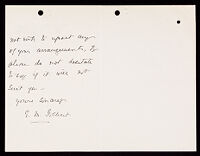 not wish to upset any
of your arrangements, so
please do not hesitate
to say if it will not
suit you.
Yours sincerely
E. M.